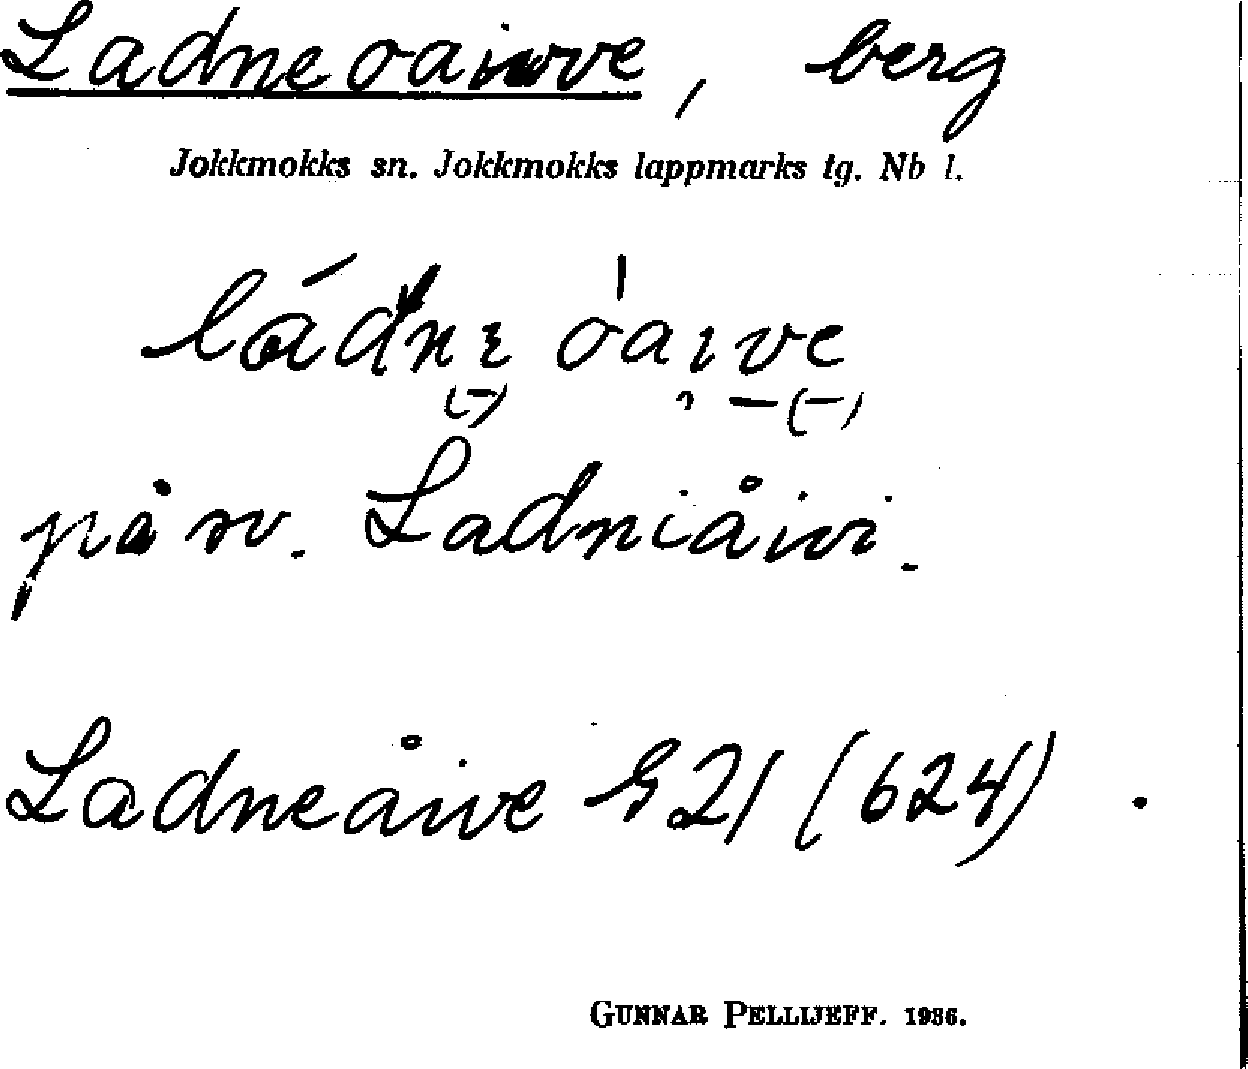 Ladneoaivve, berg
Jokkmokks sn. Jokkmokks lappmarks tg. Nb l.
ládnɛ òaıve
på sv. Ladniåivi.
Ladneåive G21 (624).
GUNNAR PELLIJEFF. 1936.